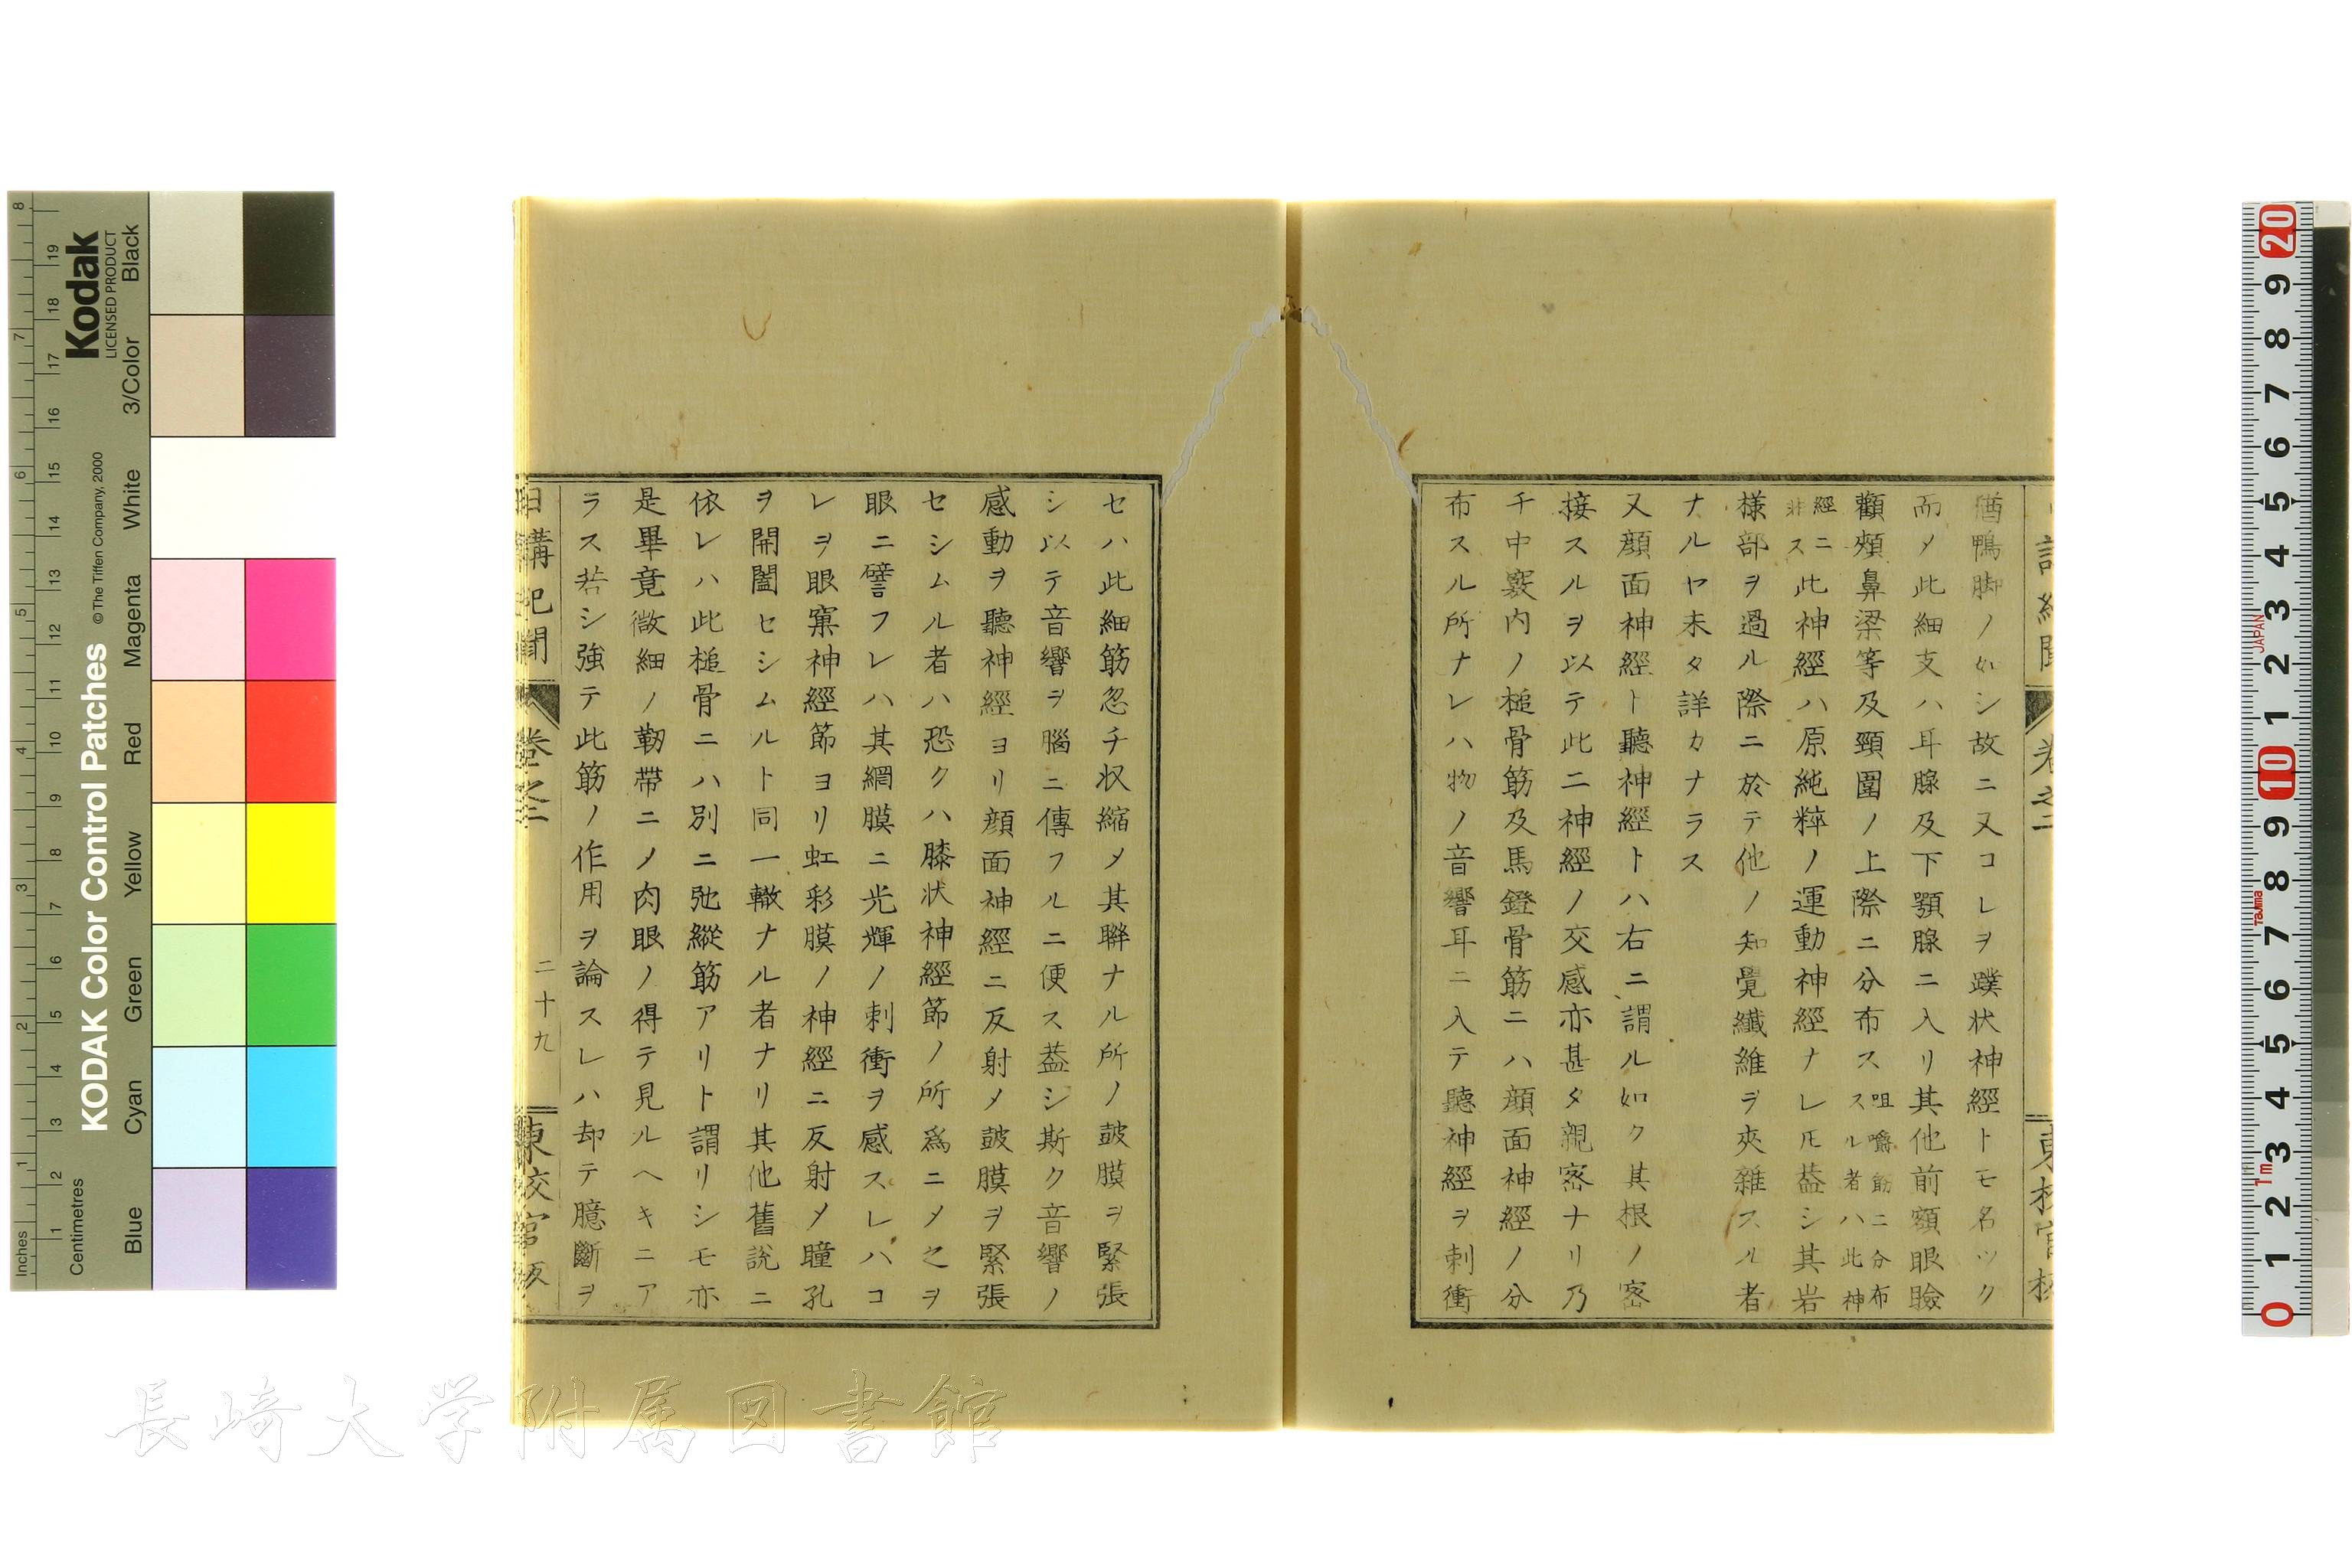 猶鴨脚ノ如シ故ニ又コレヲ蹼状神經トモ名ツク
而メ此細支ハ耳腺及下顎腺ニ入リ其他前額眼瞼
顴頰鼻梁等及頸圍ノ上際ニ分布ス咀嚼筋ニ分布スル者ハ此神
經ニ非ス此神經ハ原純粹ノ運動神經ナレ𪜈葢シ其岩
様部ヲ過ル際ニ於テ他ノ知覺纖維ヲ夾雜スル者
ナルヤ未タ詳カナラス
又顔面神經ト聽神經トハ右ニ謂ル如ク其根ノ密
接スルヲ以テ此二神經ノ交感亦甚タ親密ナリ乃
チ中竅内ノ槌骨筋及馬鐙骨筋ニハ顔面神經ノ分
布スル所ナレハ物ノ音響耳ニ入テ聽神經ヲ刺衝
セハ此細筋忽チ収縮メ其聯ナル所ノ皷膜ヲ緊張
シ以テ音響ヲ腦ニ傳フルニ便ス葢シ斯ク音響ノ
感動ヲ聽神經ヨリ顔面神經ニ反射メ皷膜ヲ緊張
セシムル者ハ恐クハ膝状神經節ノ所爲ニメ之ヲ
眼ニ譬フレハ其網膜ニ光輝ノ刺衝ヲ感スレハコ
レヲ眼窠神經節ヨリ虹彩膜ノ神經ニ反射メ瞳孔
ヲ開闔セシムルト同一轍ナル者ナリ其他舊説ニ
依レハ此槌骨ニハ別ニ弛縱筋アリト謂リシモ亦
是畢竟微細ノ靭帶ニノ肉眼ノ得テ見ルヘキニア
ラス若シ強テ此筋ノ作用ヲ論スレハ却テ臆斷ヲ
日講記聞 卷之二 二十九 東校官版
長崎大学附属図書館
Kodak
LICENSED PRODUCT
KODAK Color Control Patches
© The Tiffen Company, 2000
Inches
Centimetres
Blue Cyan Green Yellow Red Magenta White 3/Color Black
1 2 3 4 5 6 7 8
1 2 3 4 5 6 7 8 9 10 11 12 13 14 15 16 17 18 19
20 9 8 7 6 5 4 3 2 1 10 9 8 7 6 5 4 3 2 1 0
JAPAN
Tajima
1m